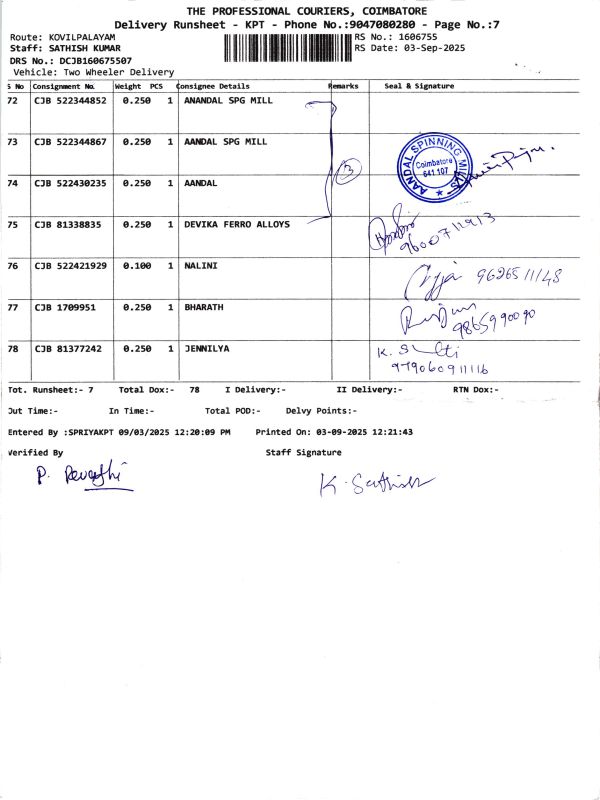 THE PROFESSIONAL COURIERS, COIMBATORE
Delivery Runsheet - KPT - Phone No.:9047080280 - Page No.:7
Route: KOVILPALAYAM RS No.: 1606755
Staff: SATHISH KUMAR RS Date: 03-Sep-2025
DRS No.: DCJB160675507
Vehicle: Two Wheeler Delivery
S No Consignment No. Weight PCS Consignee Details Remarks Seal & Signature
72 CJB 522344852 0.250 1 ANANDAL SPG MILL
73 CJB 522344867 0.250 1 AANDAL SPG MILL
3
AANDAL SPINNING MILLS
Coimbatore
641 107
74 CJB 522430235 0.250 1 AANDAL
75 CJB 81338835 0.250 1 DEVIKA FERRO ALLOYS
9600711913
76 CJB 522421929 0.100 1 NALINI
9626511148
77 CJB 1709951 0.250 1 BHARATH
9865990090
78 CJB 81377242 0.250 1 JENNILYA
K.
979060911116
Tot. Runsheet:- 7 Total Dox:- 78 I Delivery:- II Delivery:- RTN Dox:-
Out Time:- In Time:- Total POD:- Delvy Points:-
Entered By :SPRIYAKPT 09/03/2025 12:20:09 PM Printed On: 03-09-2025 12:21:43
Verified By Staff Signature
P. Revathi K. Sathish